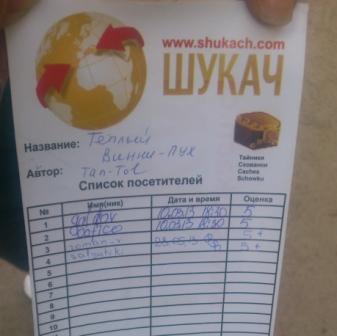 www.shukach.com
ШУКАЧ
Название: Теплый
Винни-Пух
Автор: Tan-Tol
Тайники
Сховани
Caches
Schowku
Список посетителей
№ Имя(ник) Дата и время Оценка
1 10.03.13 18:30 5
2 10.03.13 18:30 5
3 roman-r 23.05.13 5+
4
5
6
7
8
9
10